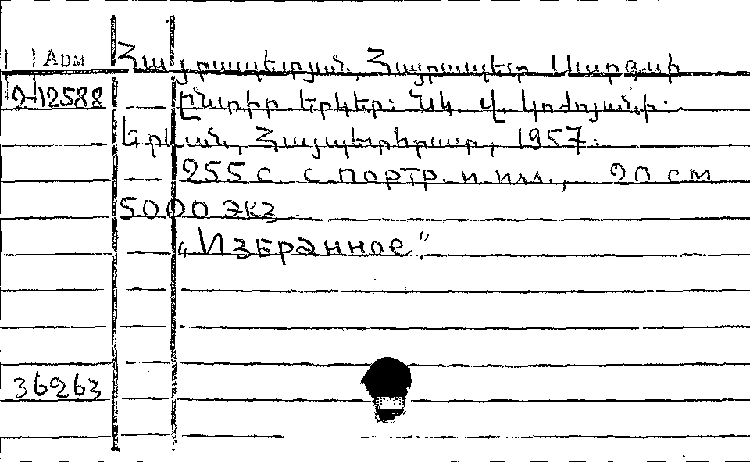 Арм Հայրապետյան, Հայրապետ Սարգսի
2-12588 Ընտիր երկեր: Նկ. Վ. Կոժոյանի.
Երևան, Հայպետհրատ, 1957.
255 с. с портр. и илл., 20 см
5000 экз
„Избранное".
36263